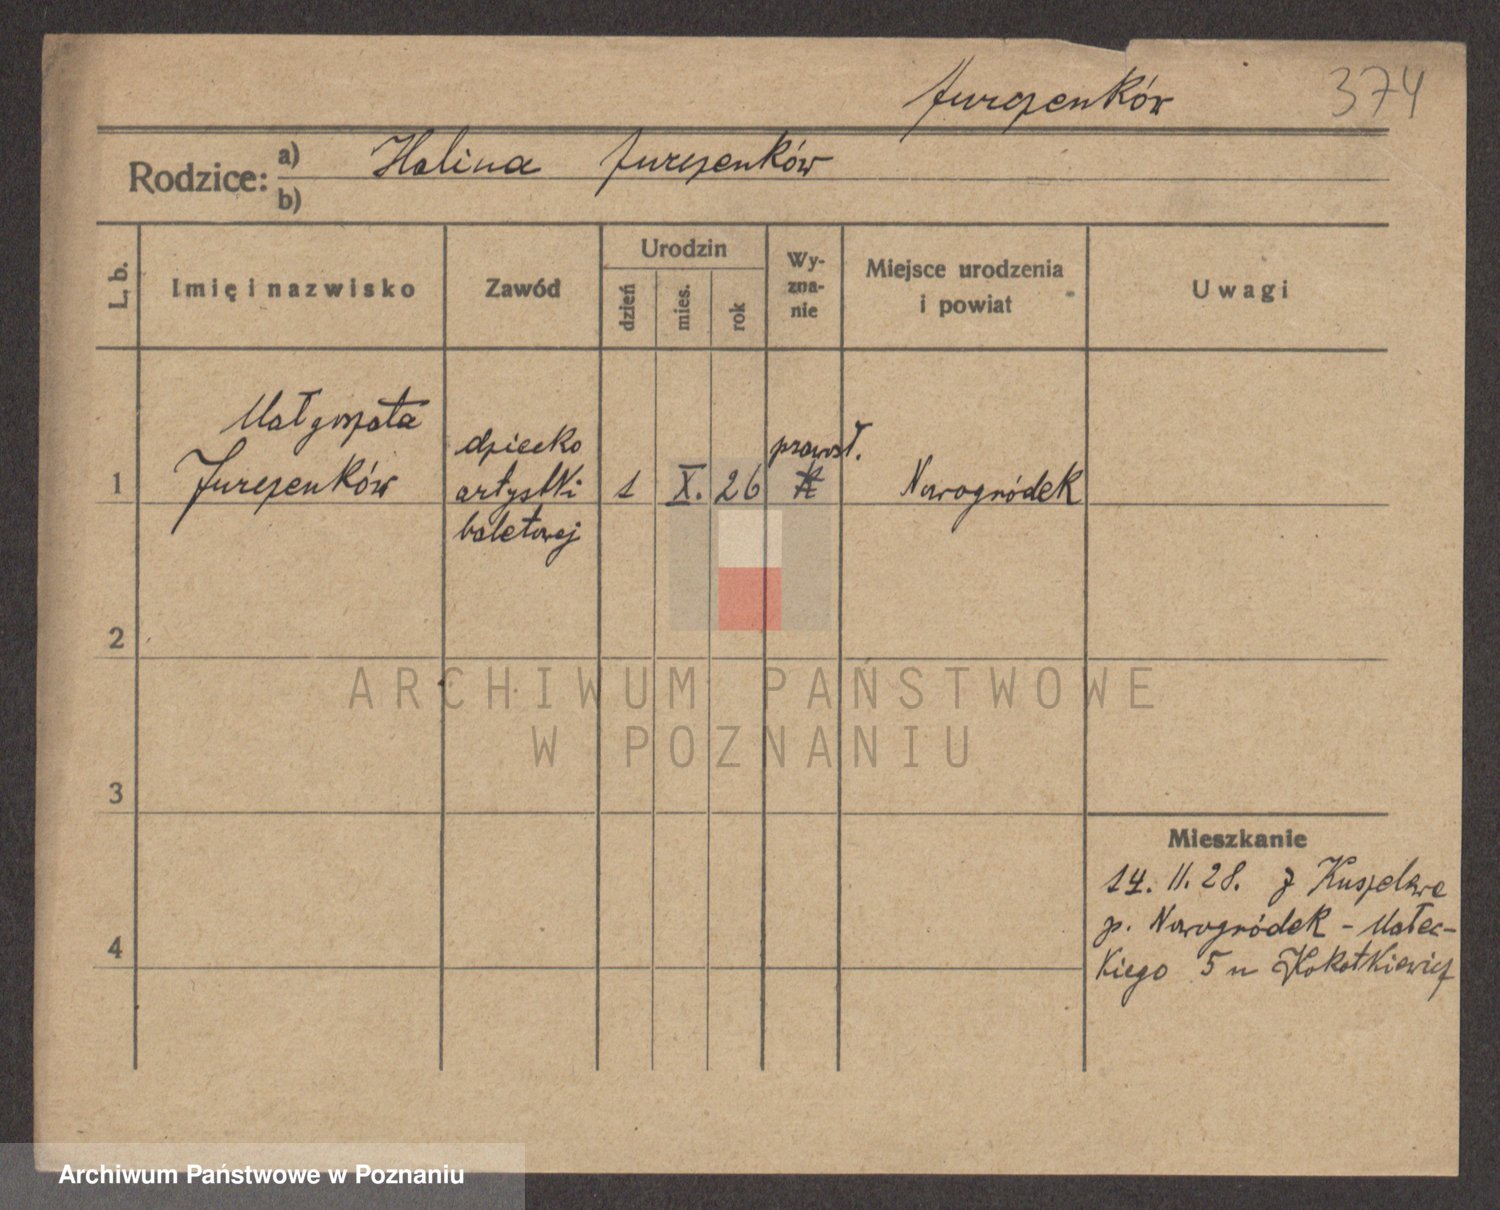 Jurczenków 374
Rodzice: a) Halina Jurczenków
b)
L. b. Imię i nazwisko Zawód Urodzin dzień mies. rok Wy-zna-nie Miejsce urodzenia i powiat Uwagi
Małgorzata
Jurczenków
dziecko
artystki
baletowej
1
1 X. 26
prawosł.
Nowogródek
2
3
4
Mieszkanie
14. 11. 28. z
p. Nowogródek - Małec-
kiego 5 u
ARCHIWUM PAŃSTWOWE
W POZNANIU
Archiwum Państwowe w Poznaniu